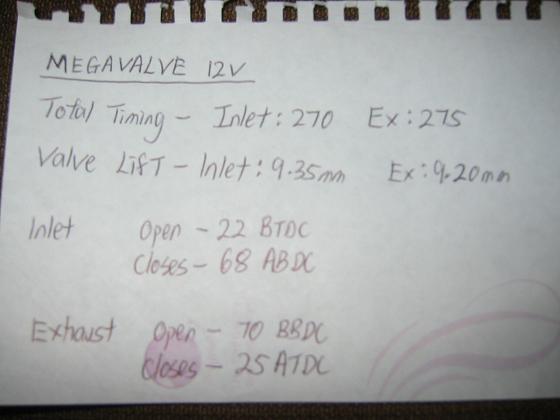 MEGAVALVE 12V
Total Timing - Inlet: 270 Ex: 275
Valve Lift - Inlet: 9.35mm Ex: 9.20mm
Inlet Open - 22 BTDC
Closes - 68 ABDC
Exhaust Open - 70 BBDC
Closes - 25 ATDC